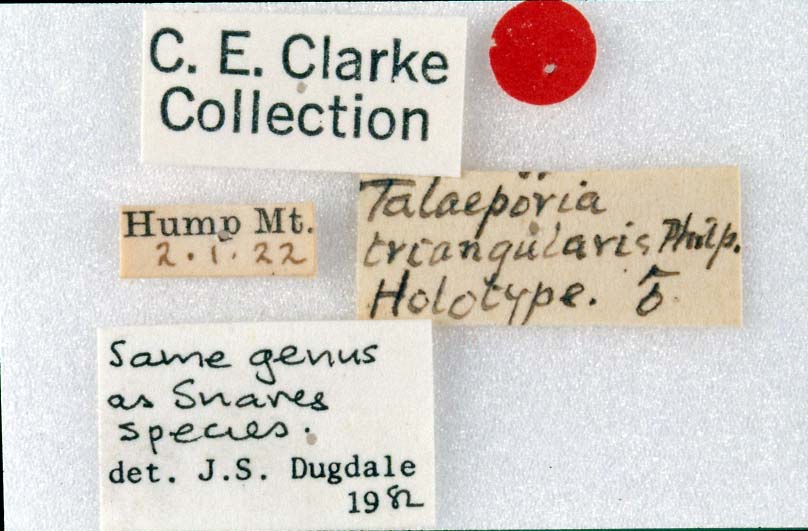 C. E. Clarke
Collection
Hump Mt.
2.1.22
Talaeporia
triangularis Philp.
Holotype. ♂
Same genus
as Snares
species.
det. J.S. Dugdale
1982